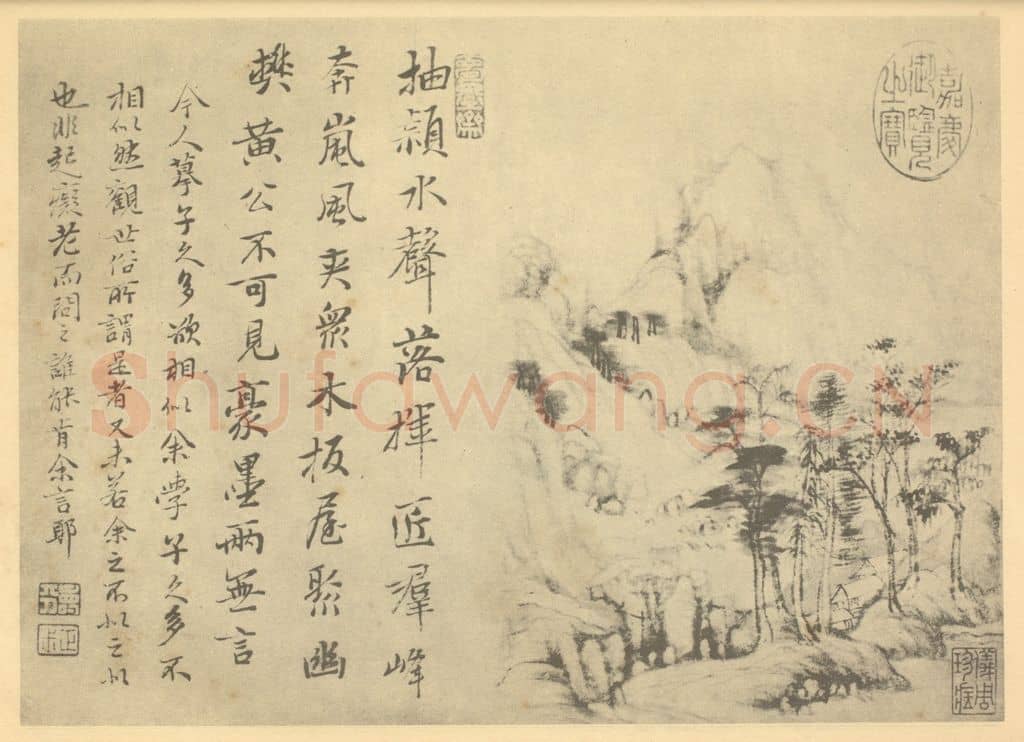 嘉慶御覽之寶
抽穎水聲落揮匠羣峰
奔嵐風夾眾木板屋聚幽
樊黃公不可見豪墨兩無言
今人摹子久多欲相似余學子久多不
相似然觀世俗所謂是者又未若余之不似之似
也非起癡老而問之誰能肯余言耶
儀周珍藏
Shufawang.CN